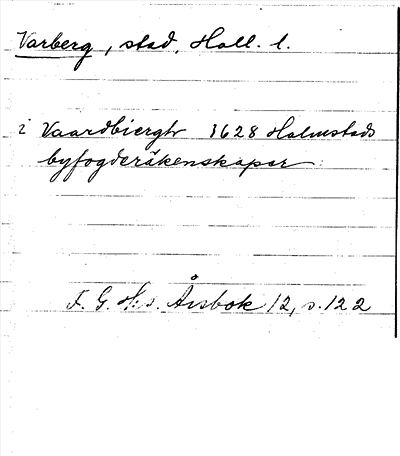 Varberg, stad, Hall. l.
i Vaardbierghr 1628 Halmstads
byfogderäkenskaper
F. G. H:s. Årsbok 12, s. 122